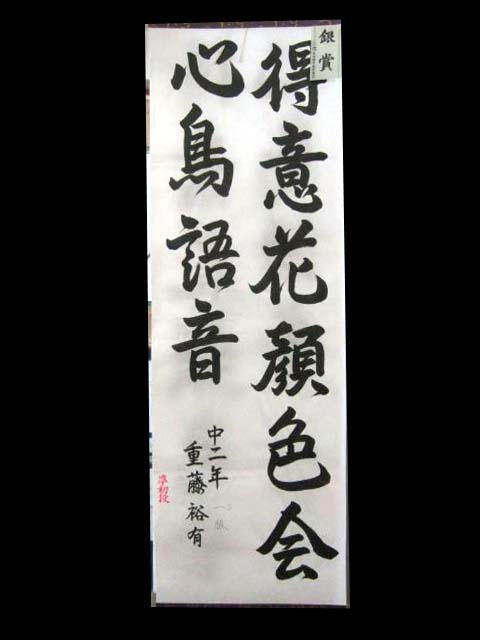 銀賞
得意花顔色会
心鳥語音
中二年
重藤裕有
準初段